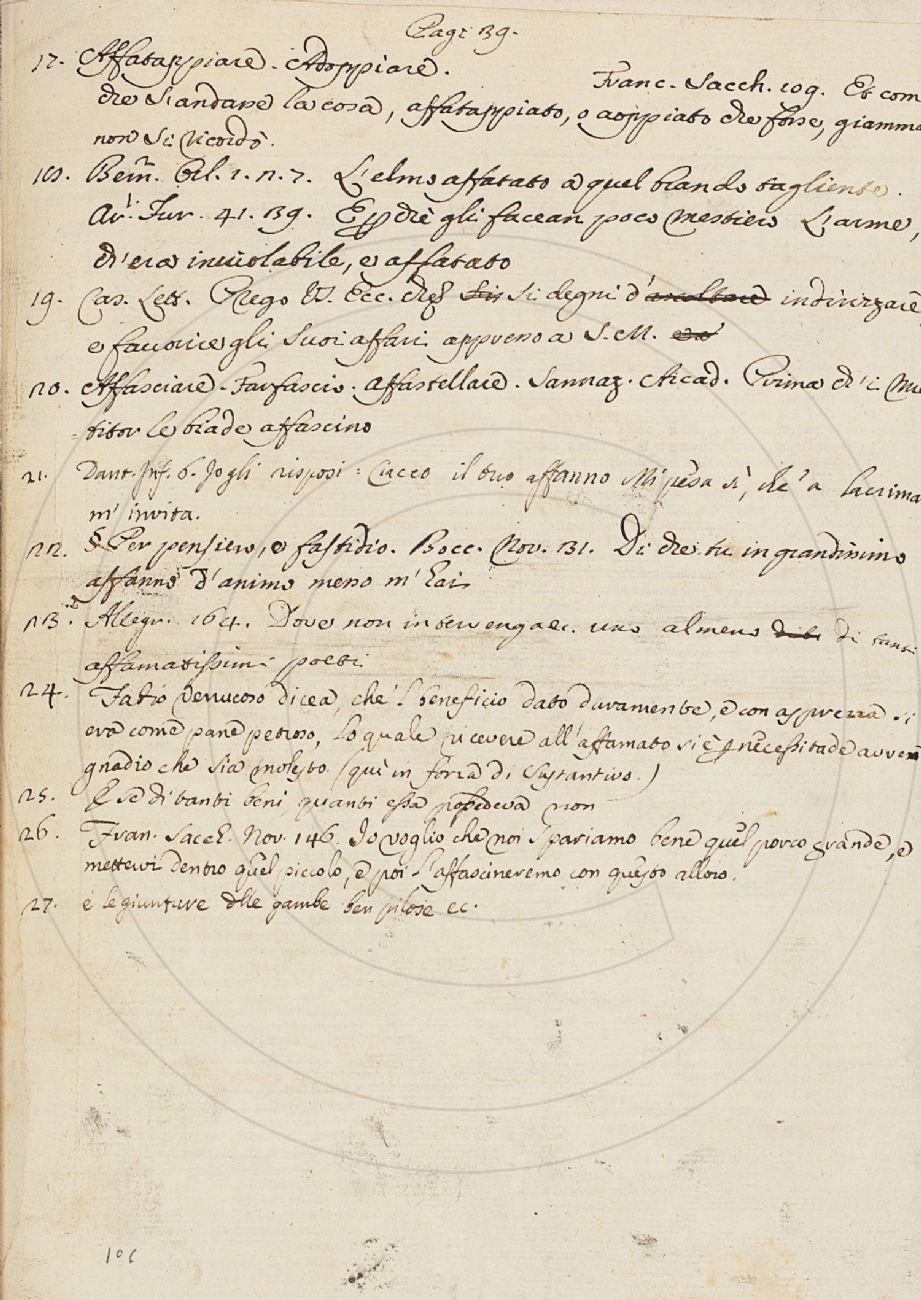 Pag: 39.
17. Affatappiare. Adoppiare.
Franc. Sacch. 109. Et com
che s'andasse la cosa, affatappiato, o aoppiato che fosse, giamma
non si ricordò.
18. Bern. Orl. 1. n. 7. L'elmo affatato a quel brando tagliente.
Ar. Fur. 41. 39. E p. chè gli facean poco mestiero L'arme,
ch'era inviolabile, e affatato
19. Cas. Lett. Prego V. Ecc. che si degni d' indirizzare
e favorire gli suoi affari appresso a S. M.
20. Affasciare. Far fascio. affastellare. Sannaz. Arcad. Prima ch'i mie
titor le biade affascino
21. Dant. Inf. 6. Jo gli risposi: Ciacco il tuo affanno Mi pesa sì, che a lacrima
m'invita.
22. § Per pensiero, e fastidio. Bocc. Nov. 31. Di che tu in grandissimo
affanno d'animo messo m'hai
23. Allegr. 164. Dove non intervengaec. uno almeno di tanti
affamatissimi poeti
24. Fabio Verrucoso dicea, che'l beneficio dato duramente, e con asprezza si
era come pane petroso, lo quale ricevere all'affamato si è necessitade avven
gnadio che sia molesto. (quì in forza di Sustantivo.)
25. E se di tanti beni, quanti essa possedeva non
26. Fran. Sacch. Nov. 146. Jo voglio che noi spariamo bene quel porco grande, e
mettervi dentro quel piccolo, e poi l'affascineremo con questo alloro.
27. e le giunture delle gambe ben pilose ec.
106